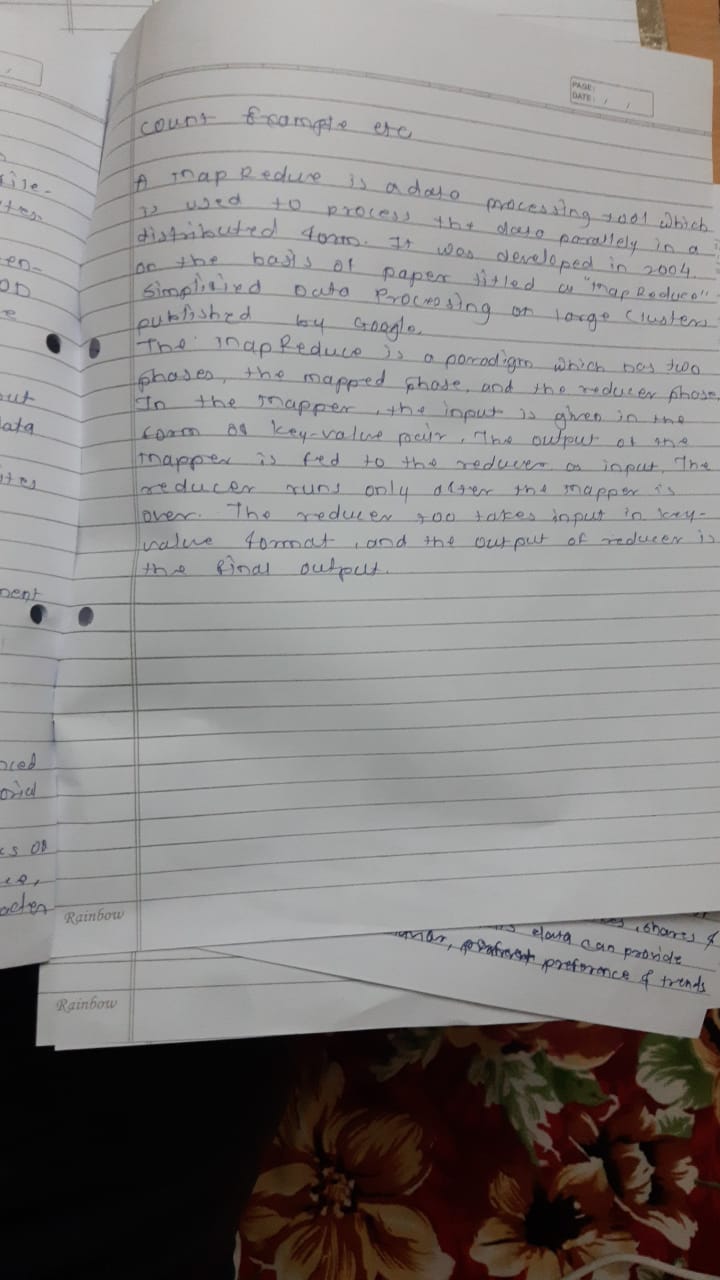 PAGE:
DATE: / /
count Example etc
A Map Reduce is a data processing tool which
is used to process the data parallely in a
distributed form. It was developed in 2004.
on the basis of paper titled as "MapReduce":
Simplified Data Processing on Large Clusters
published by Google.
The MapReduce is a paradigm which has two
phases, the mapped phase, and the reducer phase.
In the Mapper, the input is given in the
form of key-value pair. The output of the
mapper is fed to the reducer as input. The
reducer runs only after the mapper is
over. The reducer too takes input in key-
value format, and the output of reducer is
the final output.
Rainbow
Rainbow
, shares &
data can provide
preference & trends